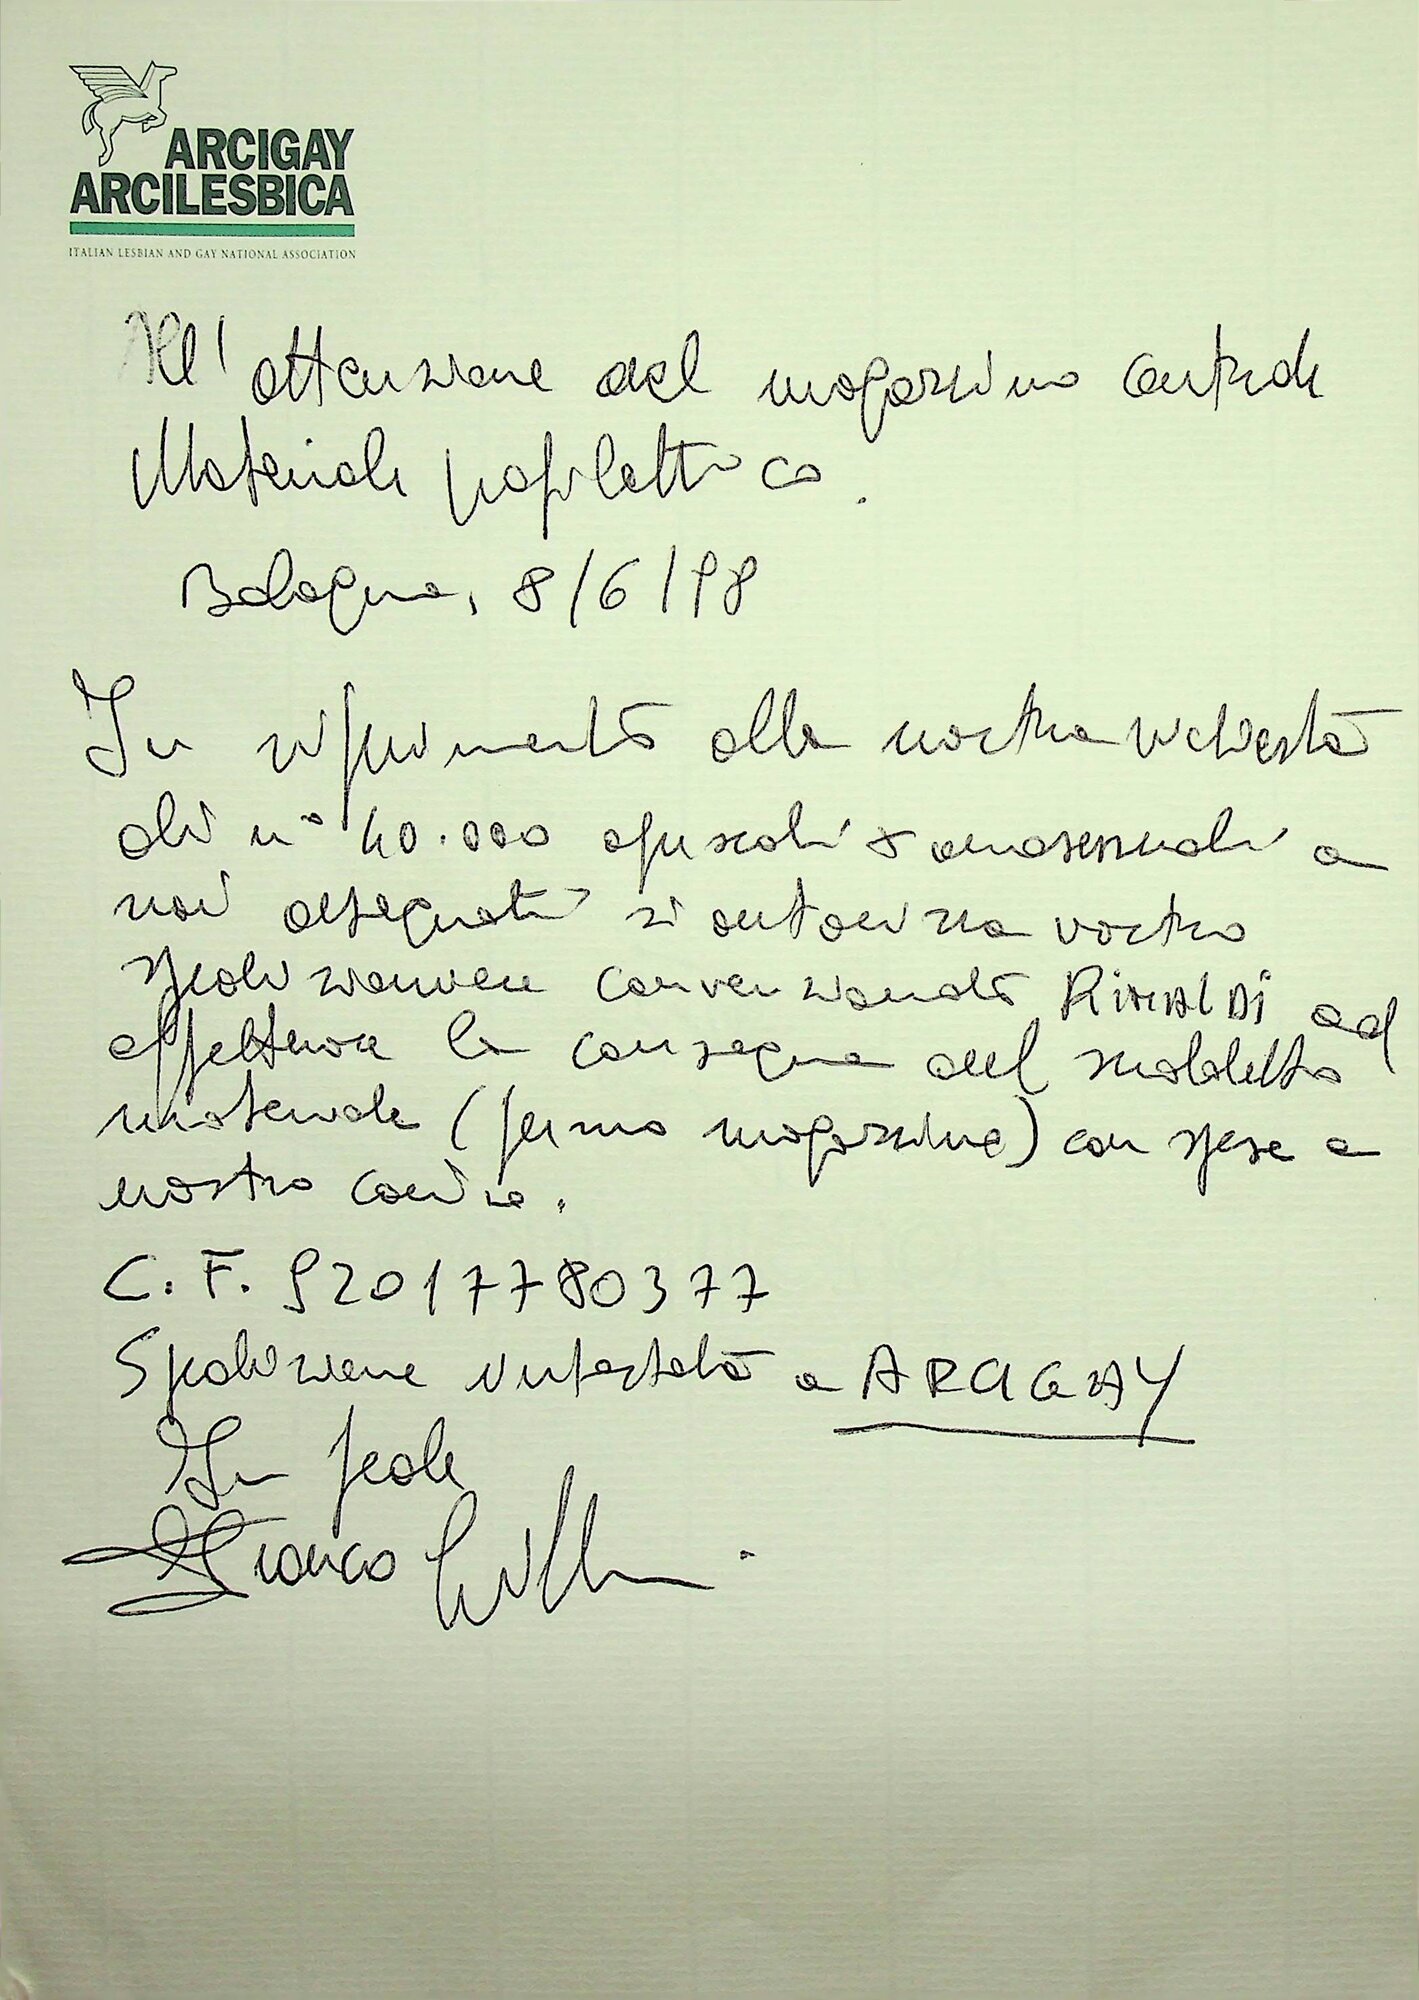 ARCIGAY
ARCILESBICA
ITALIAN LESBIAN AND GAY NATIONAL ASSOCIATION
All'attenzione del magazzino centrale
Materiale profilattico.
Bologna, 8/6/98
In riferimento alla nostra richiesta
di n° 40.000 opuscoli omosessuali a
noi assegnati si autorizza vostro
spedizioniere convenzionato RINALDI ad
effettuare la consegna del suddetto
materiale (fermo magazzino) con spese a
nostro carico.
C.F. 92017780377
Spedizione intestata a ARCIGAY
In fede
Franco Grillini.